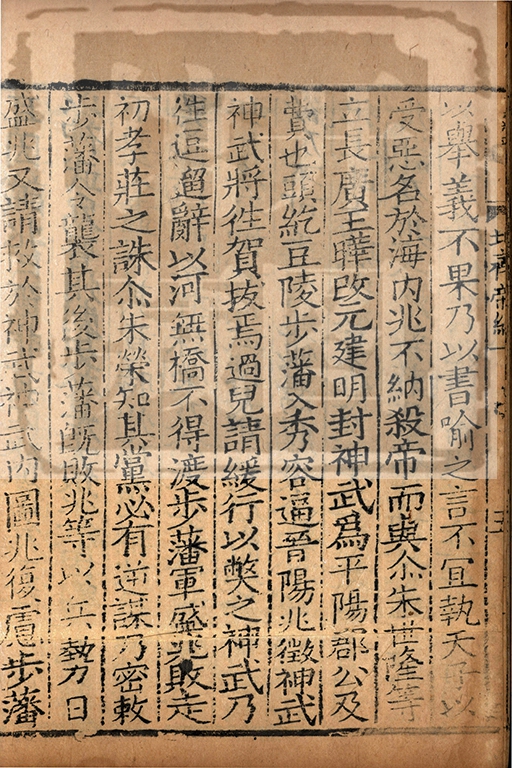 以舉義不果乃以書喻之言不宜執天子以
受惡名於海内兆不納殺帝而與尒朱世隆等
立長廣王曄改元建明封神武爲平陽郡公及
費也頭紇豆陵步藩入秀容逼晉陽兆徵神武
神武將徃賀拔焉過兒請緩行以獘之神武乃
徃逗遛辭以河無橋不得渡步藩軍盛兆敗走
初孝莊之誅尒朱榮知其黨必有逆謀乃密敕
步藩令襲其後步藩旣敗兆等以兵勢日
盛兆又請救於神武神武内圖兆復慮步藩